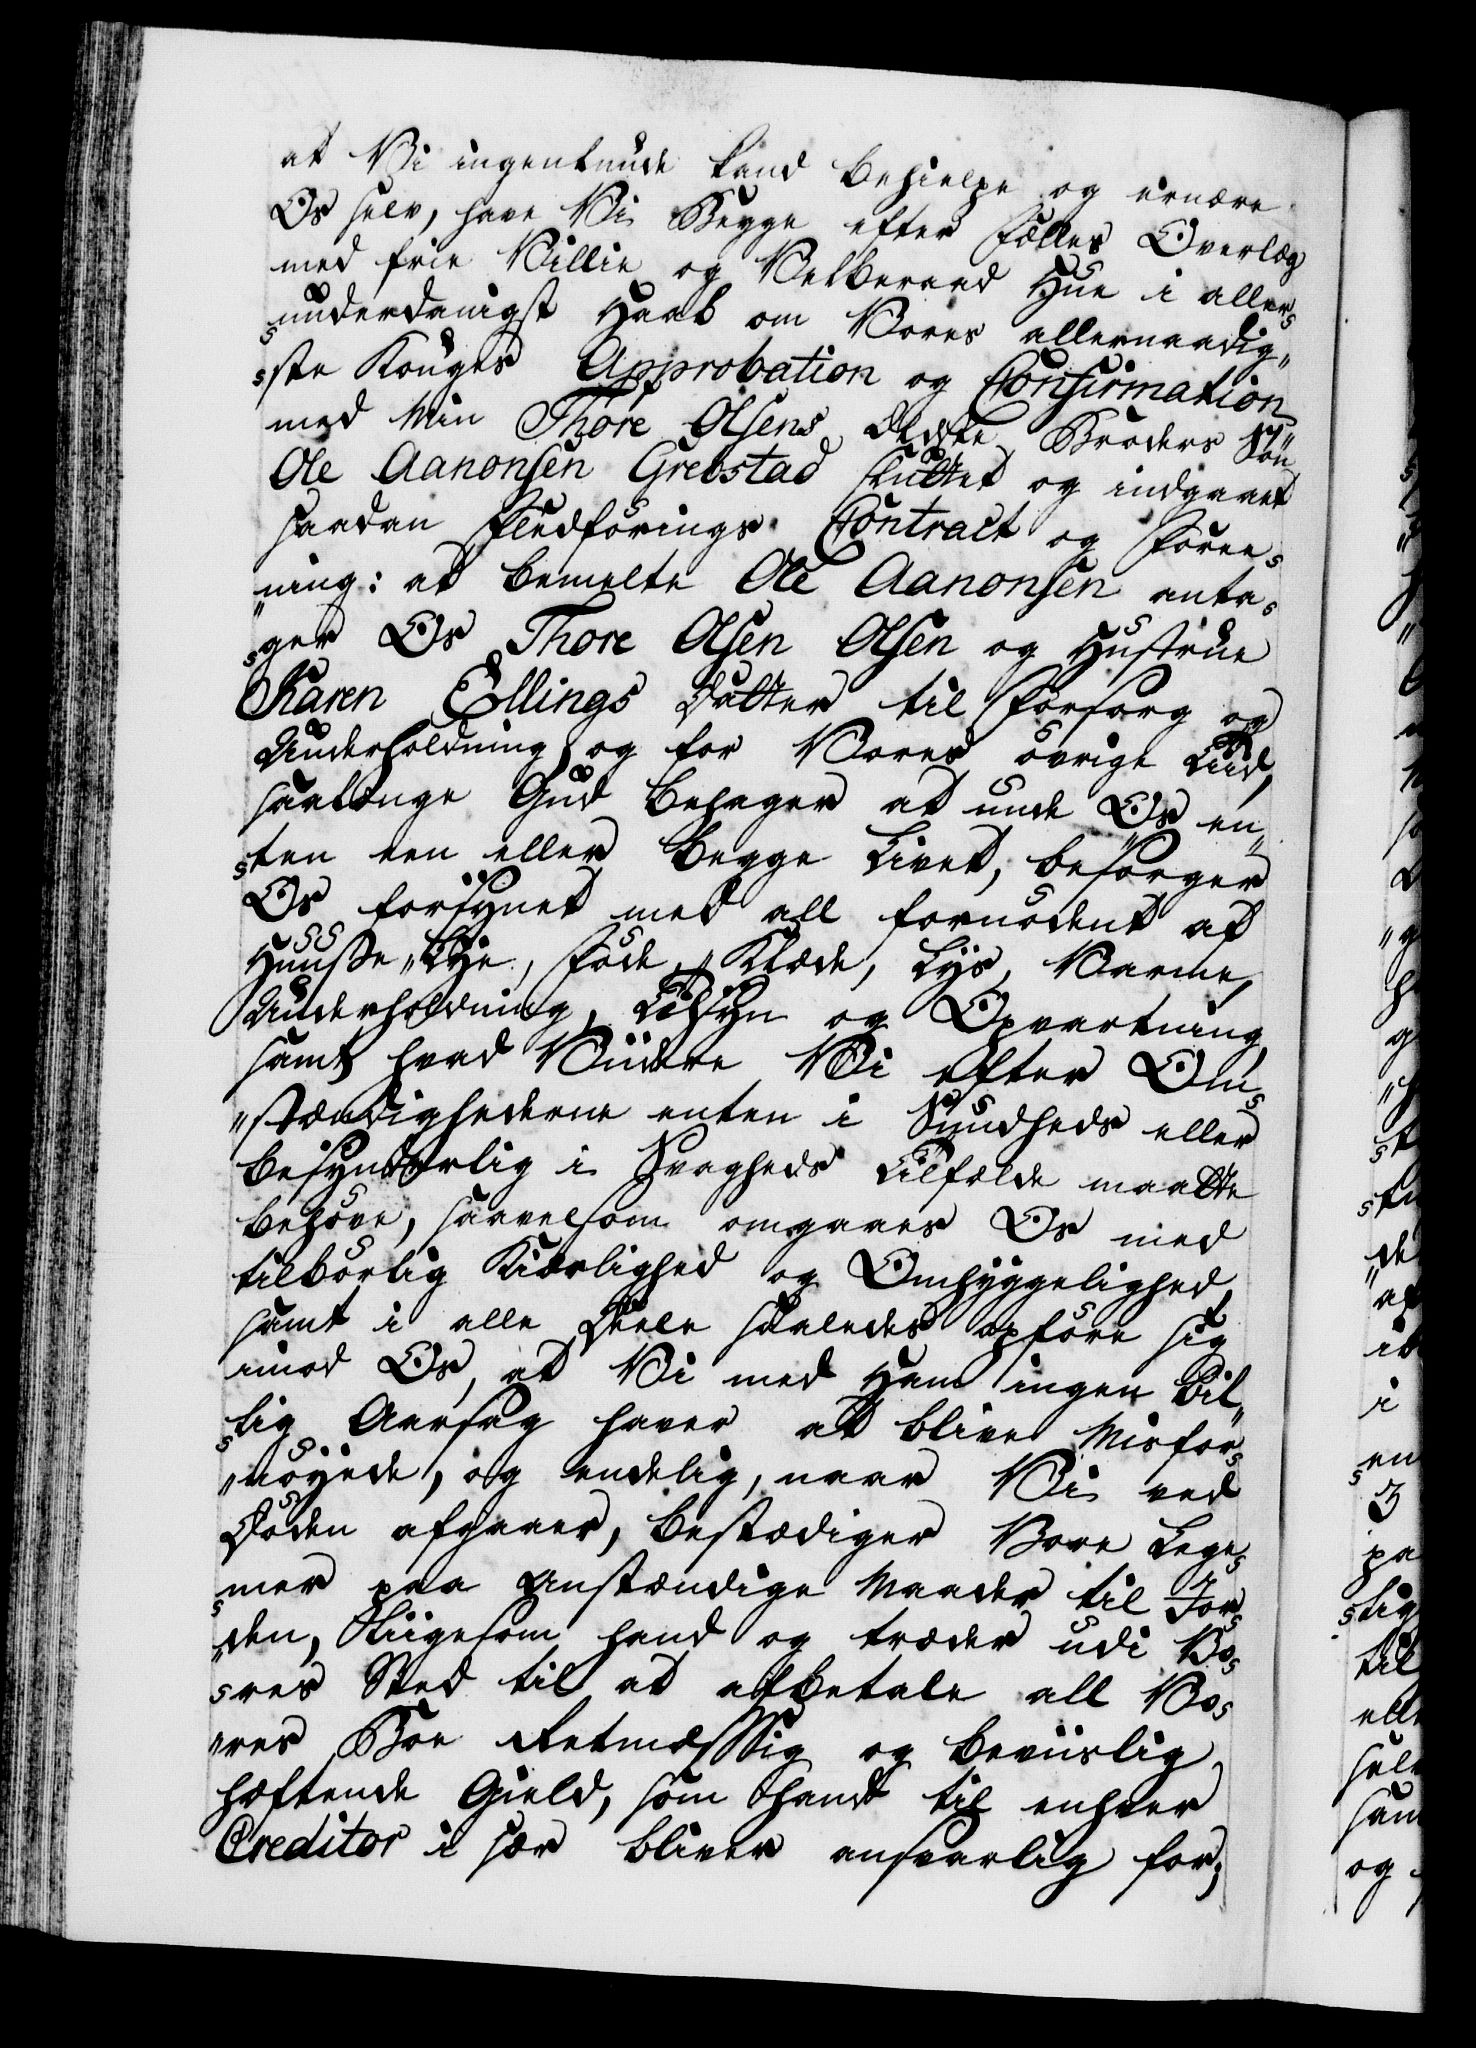 at Vi ingenlunde kand behielpe og ernære
Os selv, have Vi Begge efter fælles Overlæg
med frie Villie og Velberaad Hue i aller-
underdanigst Haab om Vores allernaadig-
ste Konges Approbation og Confirmation
med Min Thore Olsens Eldste Broders Søn
Ole Aanonsen Grebstad sluttet og indgaaet
saadan Fledførings Contract og Foree-
ning: at bemelte Ole Aanonsen anta-
ger Os Thore Olsen Olsen og Hustrue
Karen Ellings Datter til Forsorg og
Underholdning, og for Vores øvrige Tiid,
saalænge Gud behager at unde Os en-
ten een eller begge Livet, besørger
Os forsynet med all fornødent af
Huusse-Lye, Føde, Klæde, Lys, Varme,
Underholdning, Tilsyn og Opvartning,
samt hvad Viidere Vi efter Om-
stændighederne enten i Sundheds eller
besynderlig i Svagheds Tilfælde maatte
behøve, saavelsom omgaaes Os med
tilbørlig Kierlighed og Omhyggelighed,
samt i alle Deele saaledes opføre sig
imod Os, at Vi med Ham ingen bil-
lig Aarsag haver at blive Misfor-
nøyede, og endelig, naar Vi ved
Døden afgaaer, bestædiger Vore Lege-
mer paa anstændige Maader til Jor-
den, Liigesom hand og træder udi Vo-
res Sted til at afbetale all Vo-
res Boe Retmæssig og beviislig
hæftende Gield, som hand til enhver
Creditor i sær bliver ansvarlig for;